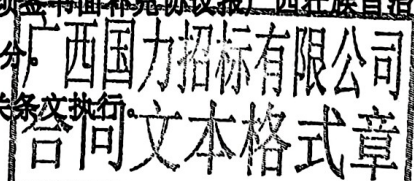 须签书面补充协议报广西壮族自治
分。
广西国力招标有限公司
关条文执行。
合同文本格式章